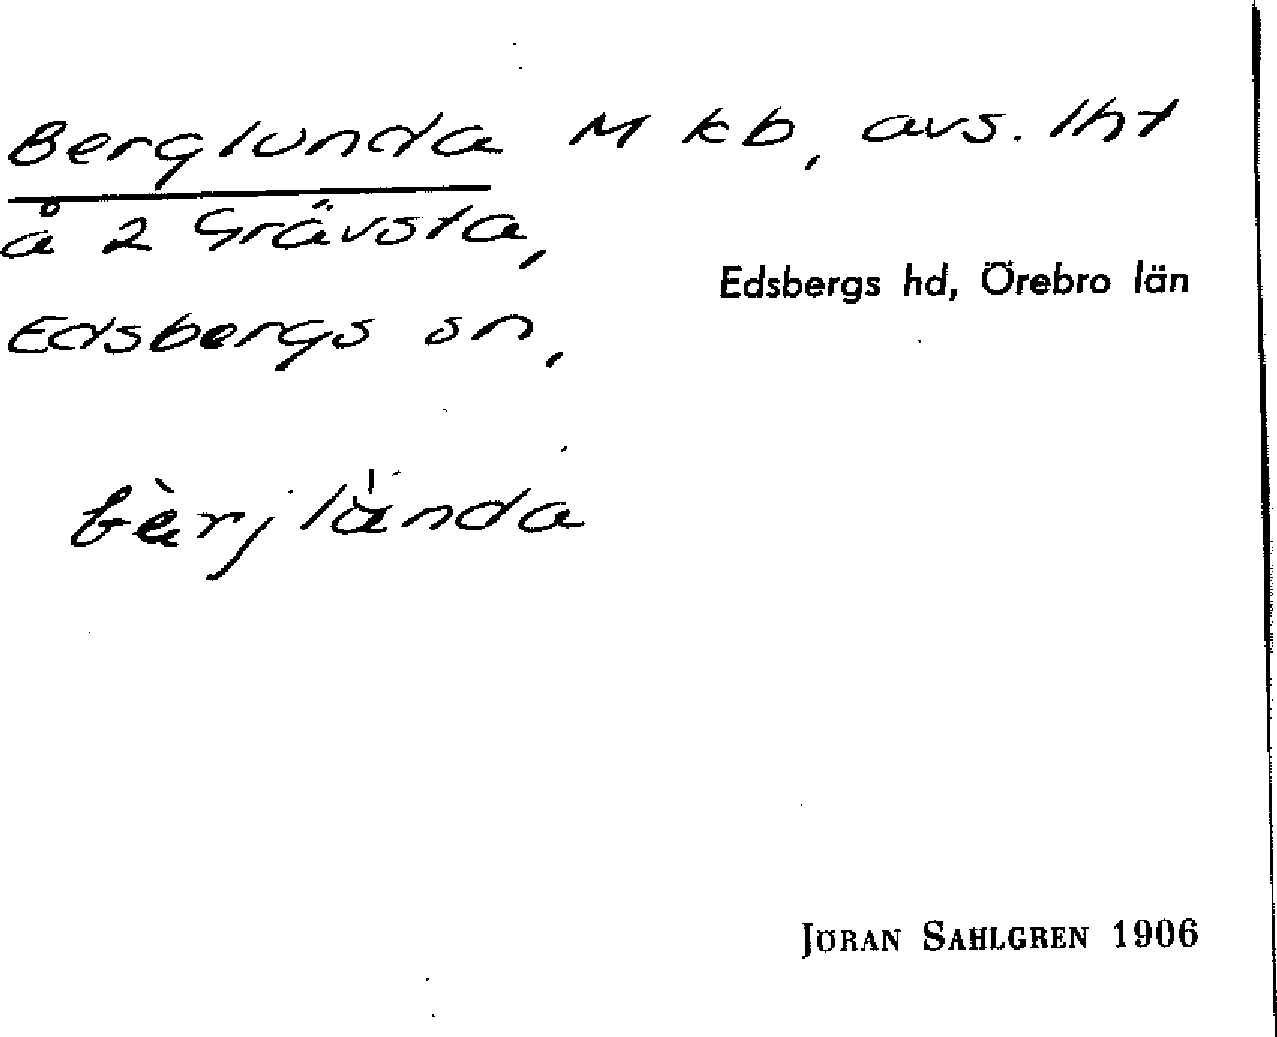 Berglunda M kb, avs. lht
å 2 Grävsta,
Edsbergs hd, Örebro län
Edsbergs sn,
JÖRAN SAHLGREN 1906